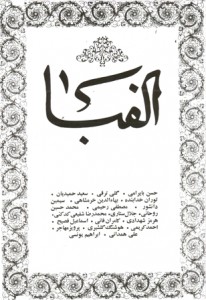 الفبا
حسن بایرامی • گلی ترقی • سعید حمیدیان
توران خداینده • بهاءالدین خرمشاهی • سیمین
دانشور • مصطفی رحیمی • محمد حسین
روحانی • جلال ستاری • محمدرضا شفیعی کدکنی
هرمز شهدادی • کامران فانی • اسماعیل فصیح
احمد کریمی • هوشنگ گلشیری • پرویز مهاجر
علی همدانی • ابراهیم یونسی